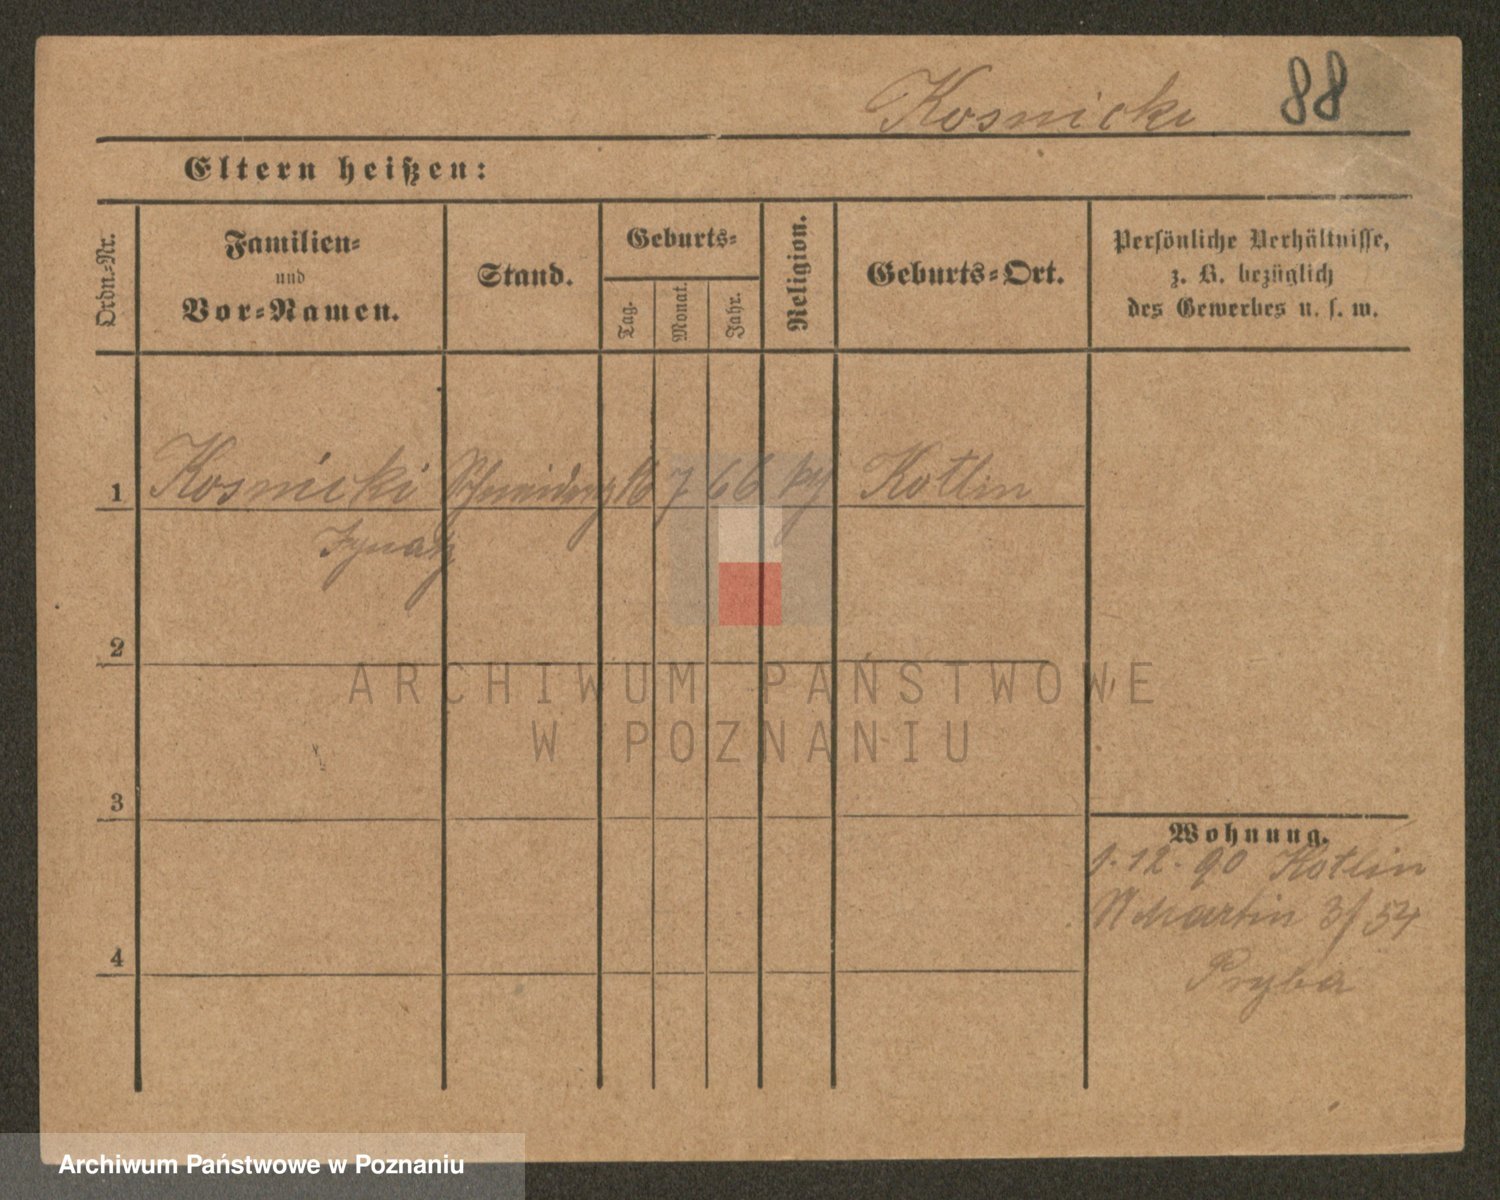 Kosnicki 88
Eltern heißen:
Ordn.-Nr.
Familien-
und
Vor-Namen.
Stand.
Geburts-
Tag.
Monat.
Jahr.
Religion.
Geburts-Ort.
Persönliche Verhältnisse,
z. B. bezüglich
des Gewerbes u. s. w.
1 Kosnicki 7 66 Kotlin
Ignatz
2
ARCHIWUM PAŃSTWOWE
W POZNANIU
3
Wohnung.
1.12.90 Kotlin
Martin 54
Pryba
4
Archiwum Państwowe w Poznaniu